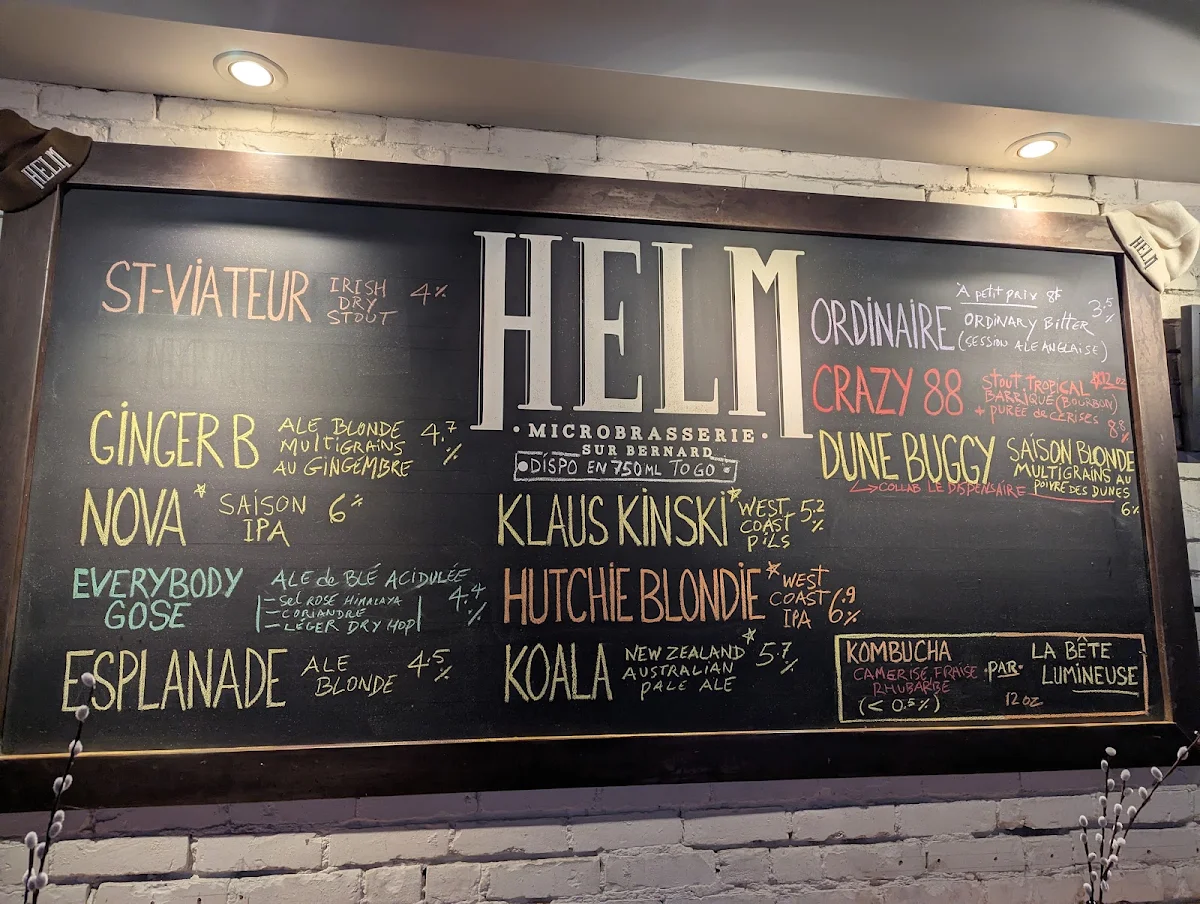 HELM
HELM
ST-VIATEUR
IRISH
DRY
STOUT
4%
GINGER B
ALE BLONDE
MULTIGRAINS
AU GINGEMBRE
4.7
%
NOVA *
SAISON
IPA
6%
EVERYBODY
GOSE
ALE de BLÉ ACIDULÉE
- SEL ROSE HIMALAYA
- CORIANDRE
- LÉGER DRY HOP
4.4
%
ESPLANADE
ALE
BLONDE
4.5
%
HELM
• MICROBRASSERIE •
SUR BERNARD
DISPO EN 750 ML TO GO
KLAUS KINSKI *
WEST
COAST
PILS
5.2
%
HUTCHIE BLONDIE *
WEST
COAST
IPA
6.9
%
KOALA
NEW ZEALAND *
AUSTRALIAN
PALE ALE
5.7
%
ORDINAIRE
À petit prix 8$
ORDINARY BITTER
(SESSION ALE ANGLAISE)
3.5
%
CRAZY 88
STOUT TROPICAL
BARRIQUÉ (BOURBON)
+ PURÉE de CERISES
8.8
%
DUNE BUGGY
SAISON BLONDE
MULTIGRAINS AU
POIVRE DES DUNES
6%
→ COLLAB LE DISPENSAIRE
KOMBUCHA
CAMERISE, FRAISE
RHUBARBE
(< 0.5%)
-PAR-
LA BÊTE
LUMINEUSE
12 oz